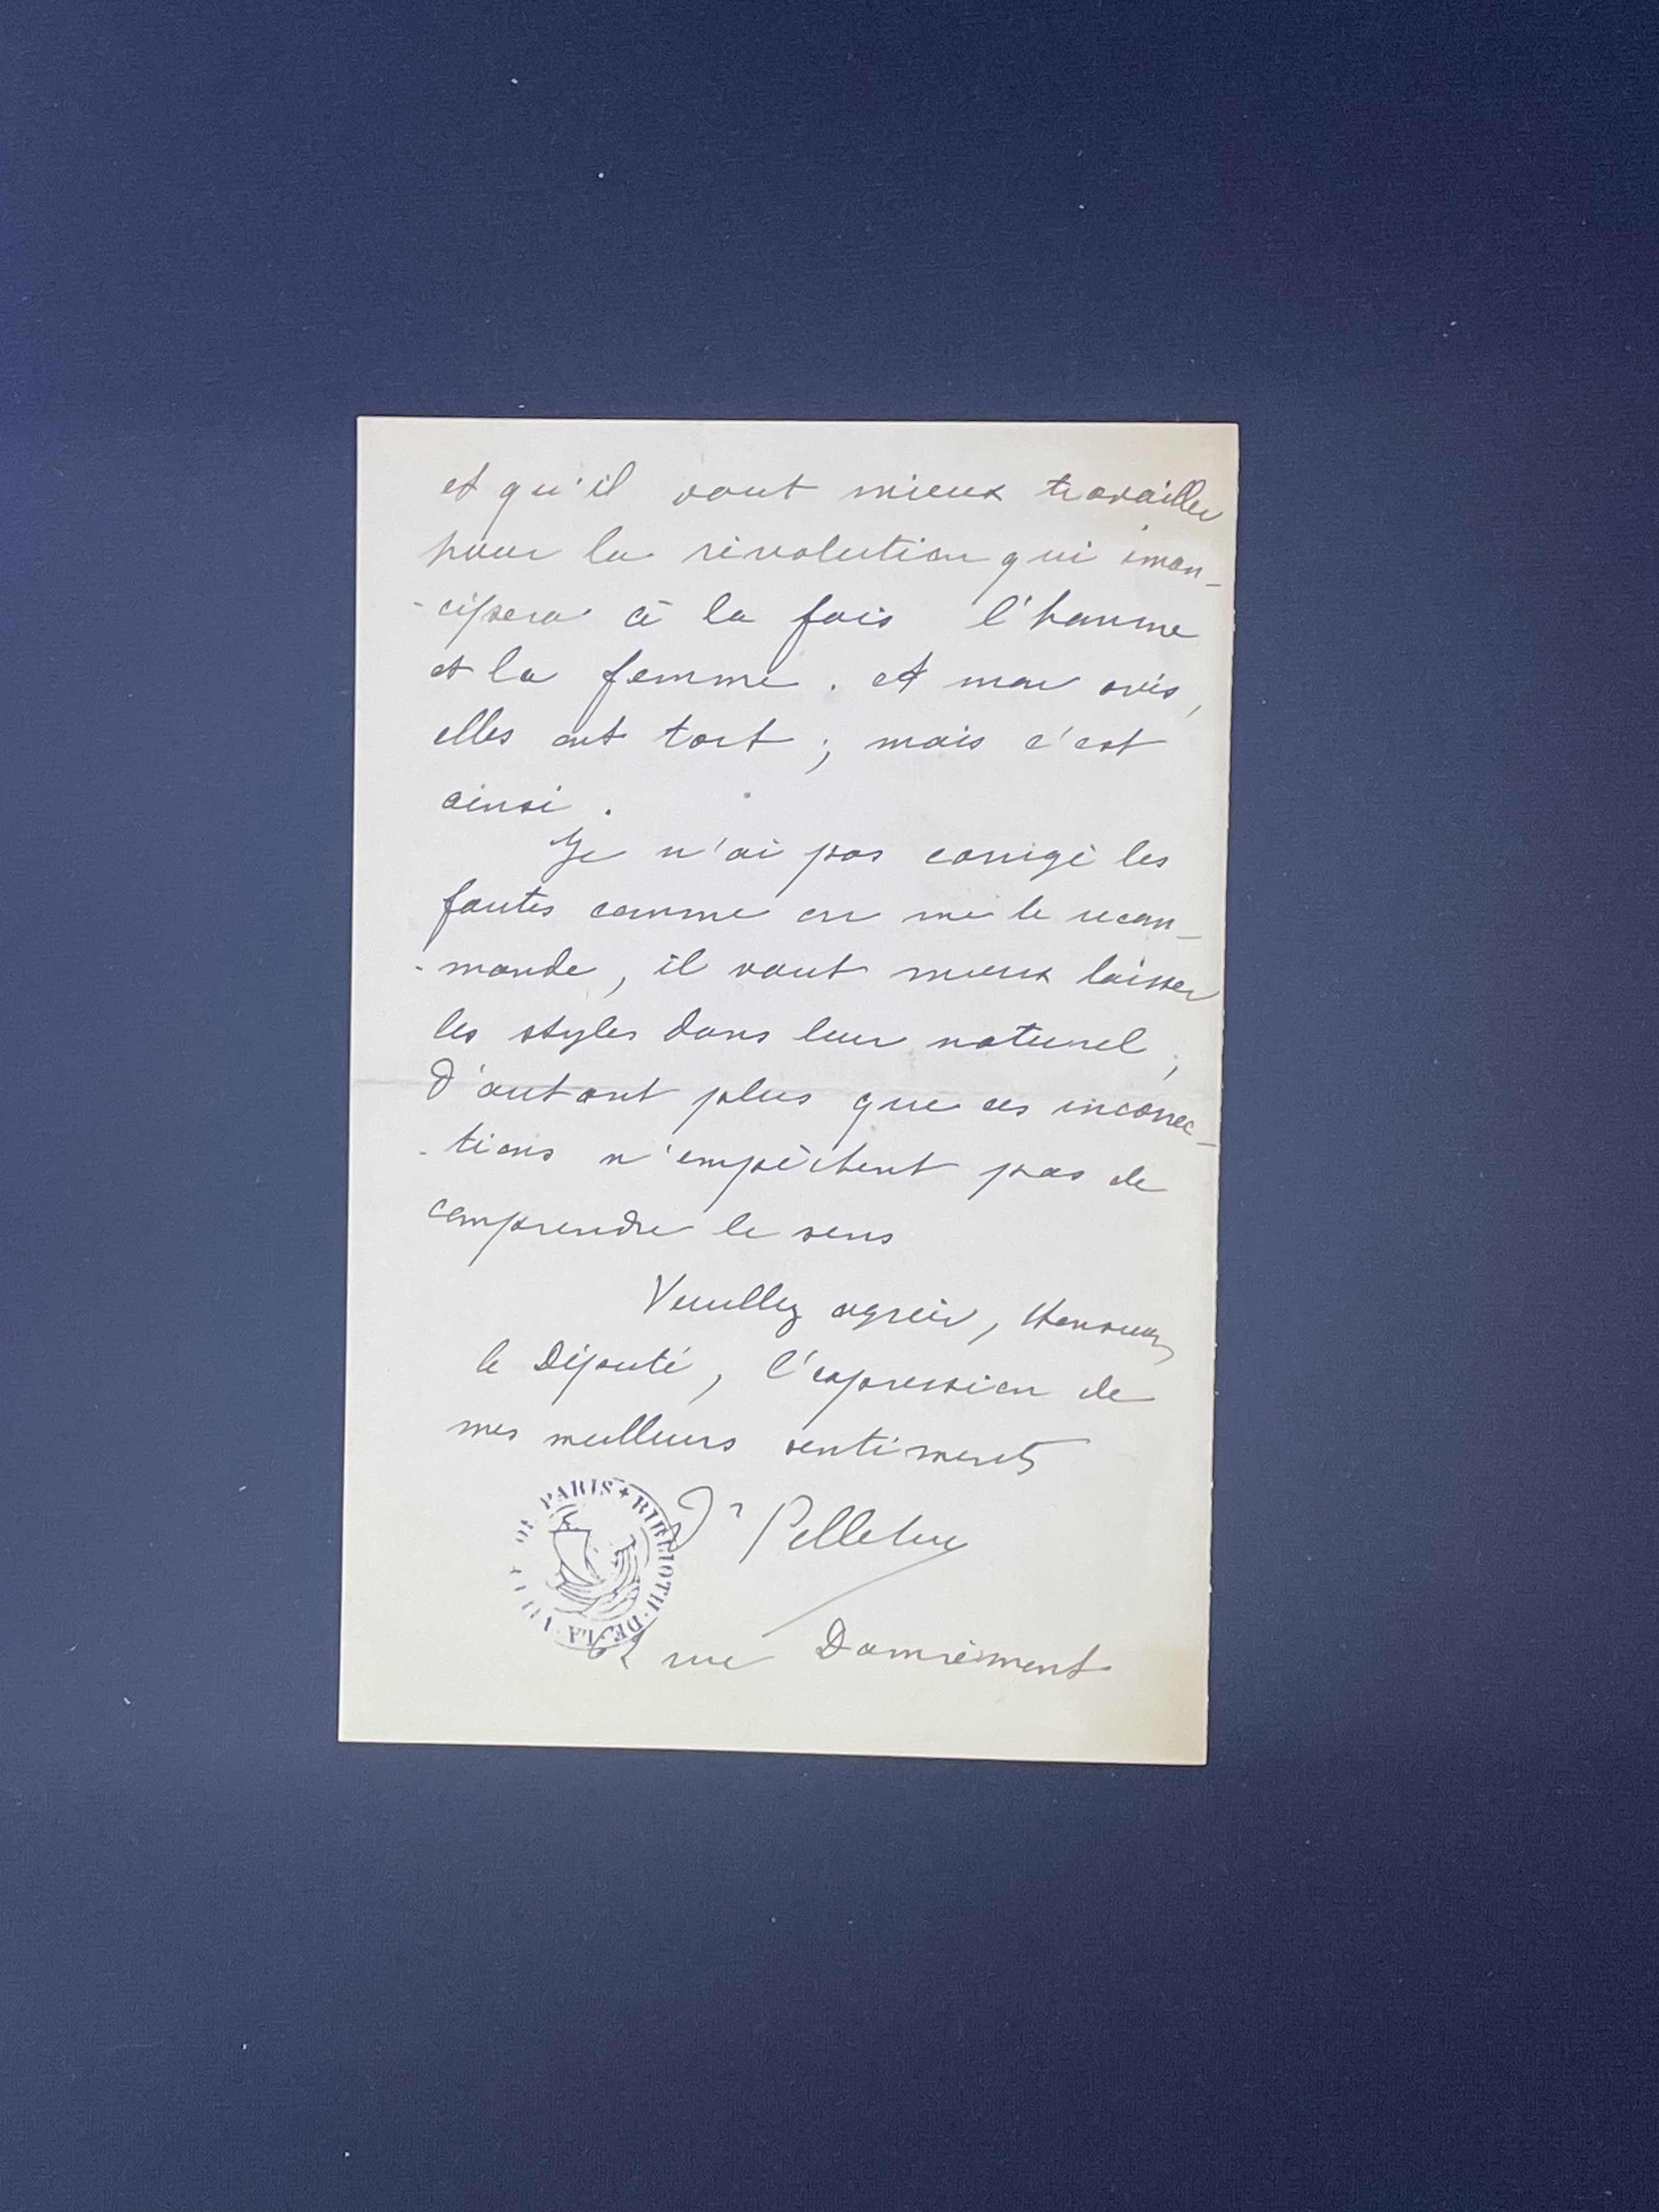 et qu'il vaut mieux travailler
pour la révolution qui éman-
-cipera à la fois l'homme
et la femme. A mon avis,
elles ont tort ; mais c'est
ainsi.
Je n'ai pas corrigé les
fautes comme on me le recom-
-mande, il vaut mieux laisser
les styles dans leur naturel,
d'autant plus que ces incorrec-
-tions n'empêchent pas de
comprendre le sens
Veuillez agréer, Monsieur
le Député, l'expression de
mes meilleurs sentiments
Dr Pelletier
PARIS + BIBLIOTH. DE LA VILLE DE
rue Damrémont